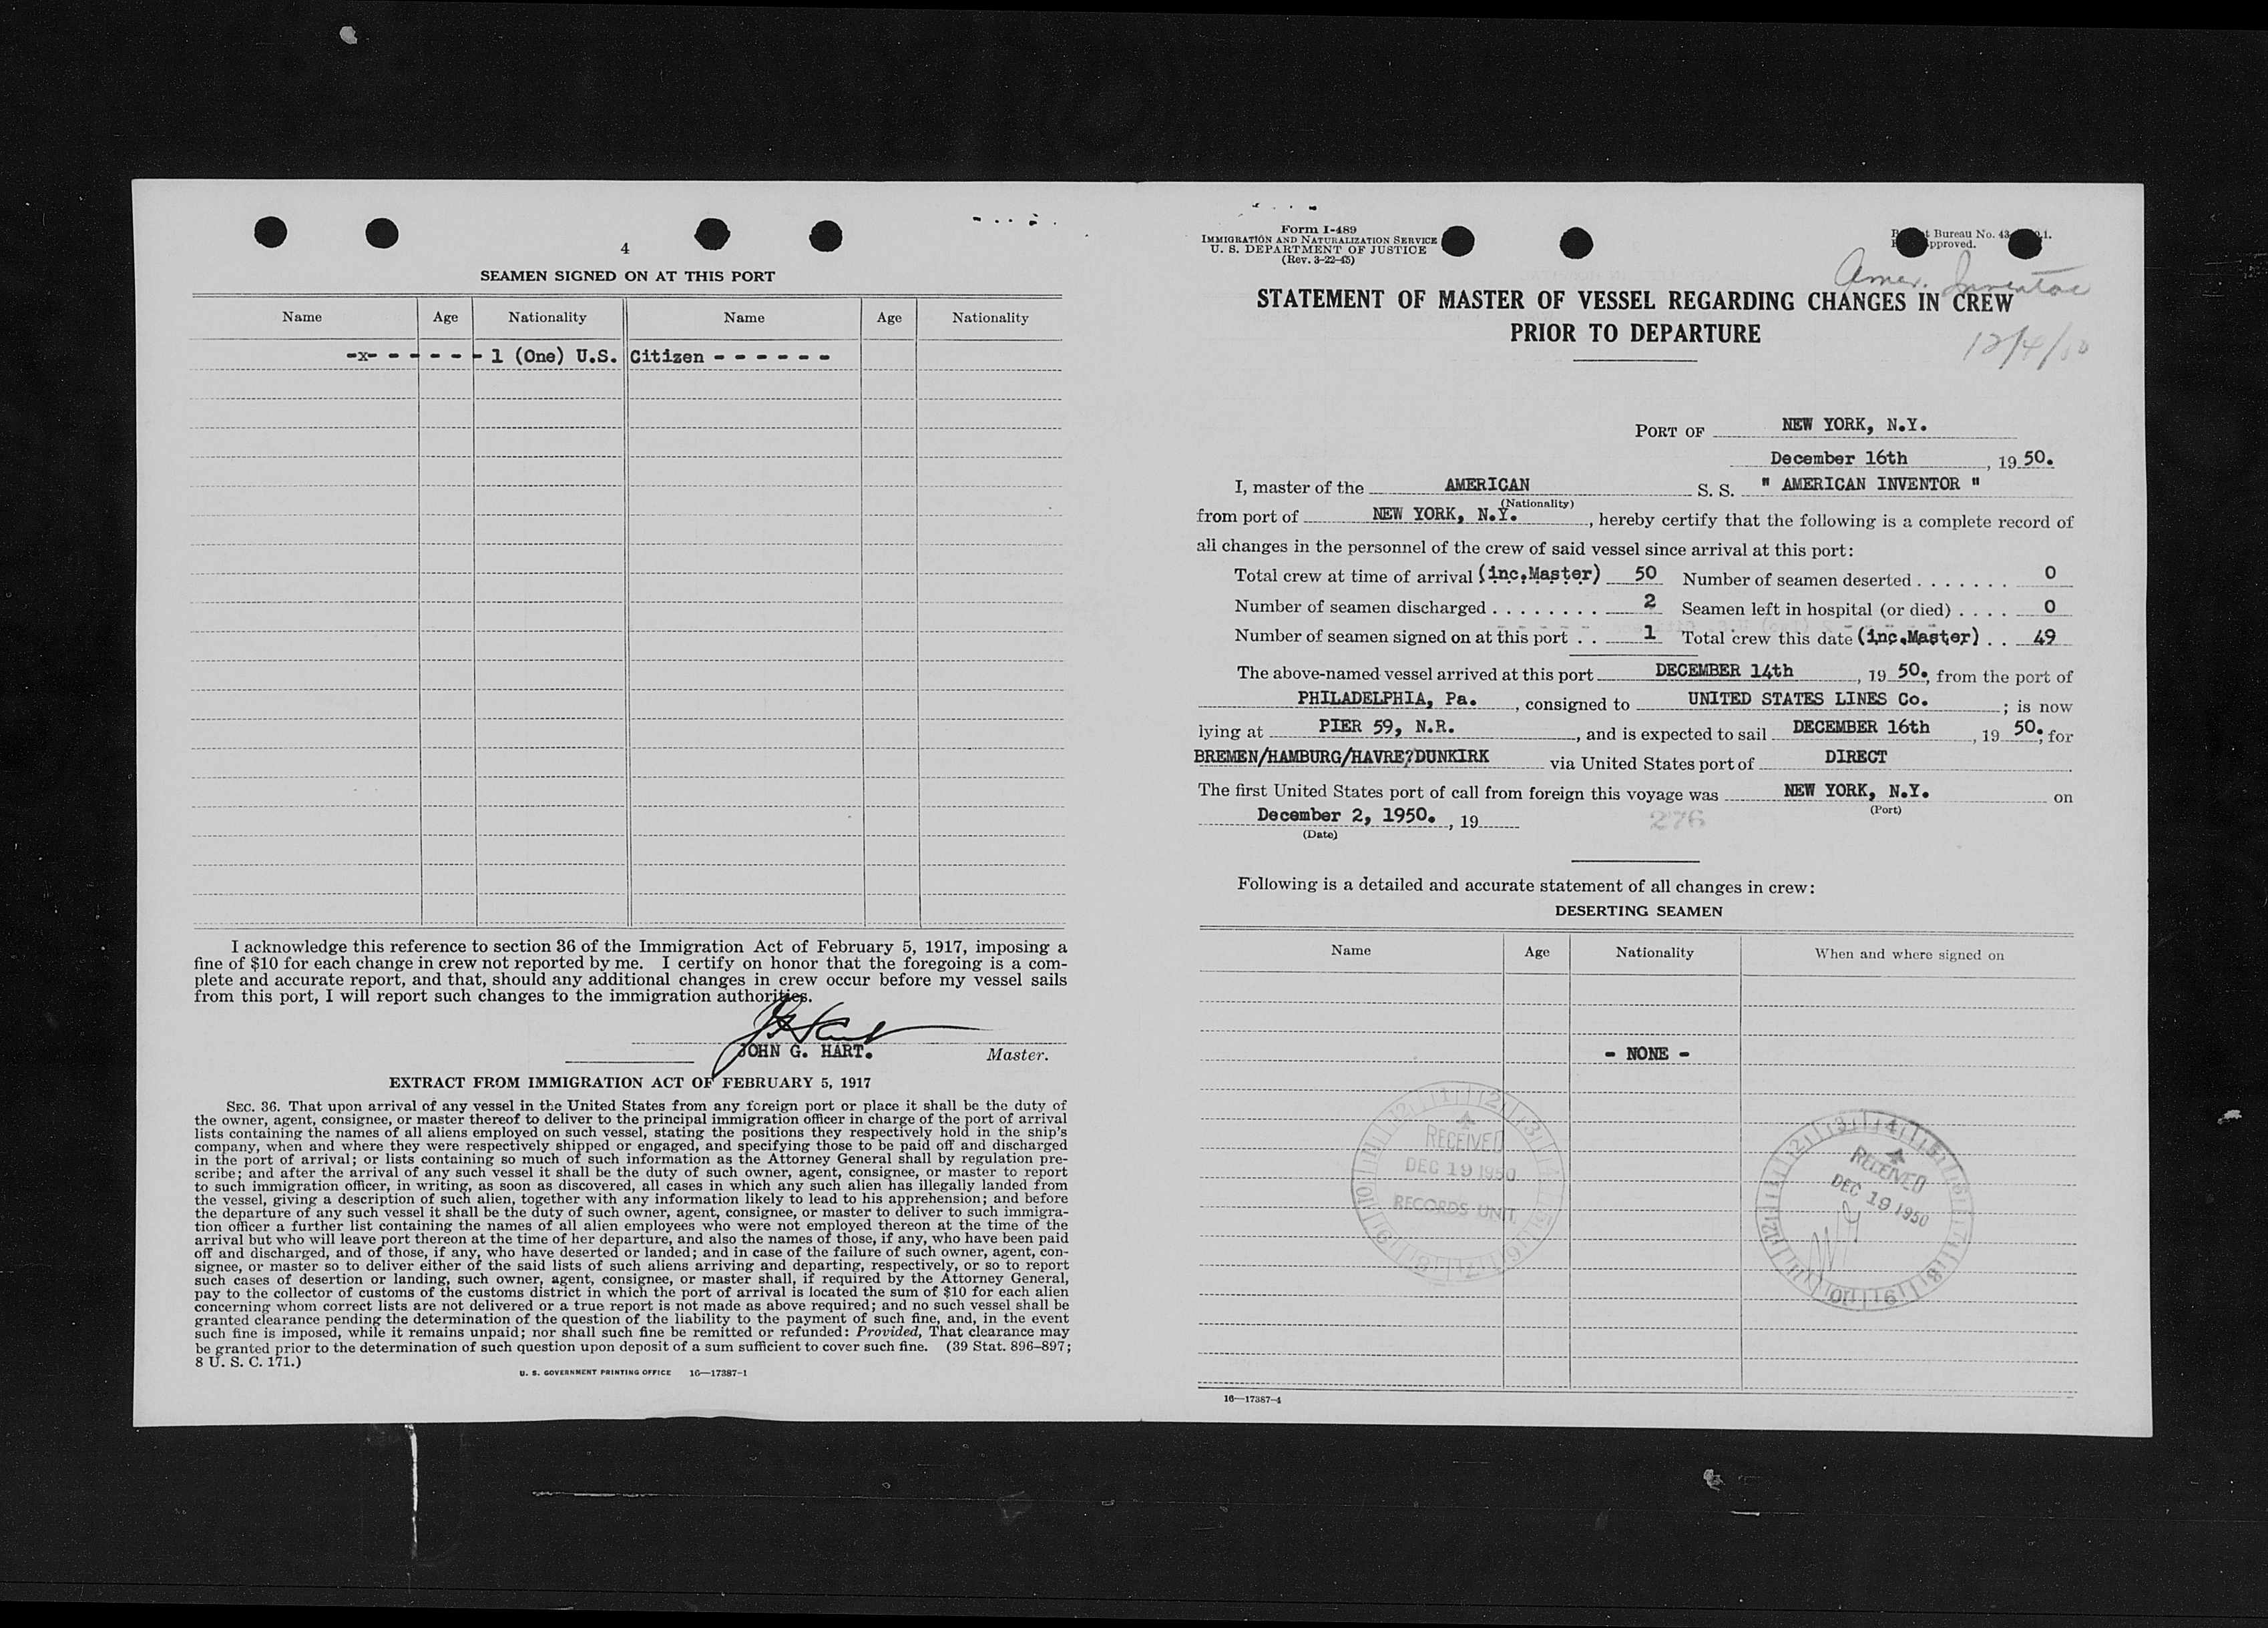 4
SEAMEN SIGNED ON AT THIS PORT
Name Age Nationality Name Age Nationality
-x- - - - - - 1 (One) U.S. Citizen - - - - - -
I acknowledge this reference to section 36 of the Immigration Act of February 5, 1917, imposing a
fine of $10 for each change in crew not reported by me. I certify on honor that the foregoing is a com-
plete and accurate report, and that, should any additional changes in crew occur before my vessel sails
from this port, I will report such changes to the immigration authorities.
JOHN G. HART. Master.
EXTRACT FROM IMMIGRATION ACT OF FEBRUARY 5, 1917
SEC. 36. That upon arrival of any vessel in the United States from any foreign port or place it shall be the duty of
the owner, agent, consignee, or master thereof to deliver to the principal immigration officer in charge of the port of arrival
lists containing the names of all aliens employed on such vessel, stating the positions they respectively hold in the ship's
company, when and where they were respectively shipped or engaged, and specifying those to be paid off and discharged
in the port of arrival; or lists containing so much of such information as the Attorney General shall by regulation pre-
scribe; and after the arrival of any such vessel it shall be the duty of such owner, agent, consignee, or master to report
to such immigration officer, in writing, as soon as discovered, all cases in which any such alien has illegally landed from
the vessel, giving a description of such alien, together with any information likely to lead to his apprehension; and before
the departure of any such vessel it shall be the duty of such owner, agent, consignee, or master to deliver to such immigra-
tion officer a further list containing the names of all alien employees who were not employed thereon at the time of the
arrival but who will leave port thereon at the time of her departure, and also the names of those, if any, who have been paid
off and discharged, and of those, if any, who have deserted or landed; and in case of the failure of such owner, agent, con-
signee, or master so to deliver either of the said lists of such aliens arriving and departing, respectively, or so to report
such cases of desertion or landing, such owner, agent, consignee, or master shall, if required by the Attorney General,
pay to the collector of customs of the customs district in which the port of arrival is located the sum of $10 for each alien
concerning whom correct lists are not delivered or a true report is not made as above required; and no such vessel shall be
granted clearance pending the determination of the question of the liability to the payment of such fine, and, in the event
such fine is imposed, while it remains unpaid; nor shall such fine be remitted or refunded: Provided, That clearance may
be granted prior to the determination of such question upon deposit of a sum sufficient to cover such fine. (39 Stat. 896–897;
8 U. S. C. 171.)
U. S. GOVERNMENT PRINTING OFFICE 16—17387-1
Form I-489
IMMIGRATION AND NATURALIZATION SERVICE
U. S. DEPARTMENT OF JUSTICE
(Rev. 3-22-45)
Bureau No. 43
pproved.
Amer. Inventor
STATEMENT OF MASTER OF VESSEL REGARDING CHANGES IN CREW
PRIOR TO DEPARTURE
12/4/50
PORT OF NEW YORK, N.Y.
December 16th, 19 50.
I, master of the AMERICAN S. S. " AMERICAN INVENTOR "
(Nationality)
from port of NEW YORK, N.Y., hereby certify that the following is a complete record of
all changes in the personnel of the crew of said vessel since arrival at this port:
Total crew at time of arrival (inc.Master) 50 Number of seamen deserted . . . . . . . 0
Number of seamen discharged . . . . . . . . 2 Seamen left in hospital (or died) . . . . 0
Number of seamen signed on at this port . . 1 Total crew this date (inc.Master) . . 49
The above-named vessel arrived at this port DECEMBER 14th, 19 50., from the port of
PHILADELPHIA, Pa., consigned to UNITED STATES LINES Co.; is now
lying at PIER 59, N.R., and is expected to sail DECEMBER 16th, 19 50., for
BREMEN/HAMBURG/HAVRE?DUNKIRK via United States port of DIRECT
The first United States port of call from foreign this voyage was NEW YORK, N.Y. on
(Port)
December 2, 1950., 19
(Date)
276
Following is a detailed and accurate statement of all changes in crew:
DESERTING SEAMEN
Name Age Nationality When and where signed on
- NONE -
RECEIVED
DEC 19 1950
RECORDS UNIT
RECEIVED
DEC 19 1950
16—17387-4